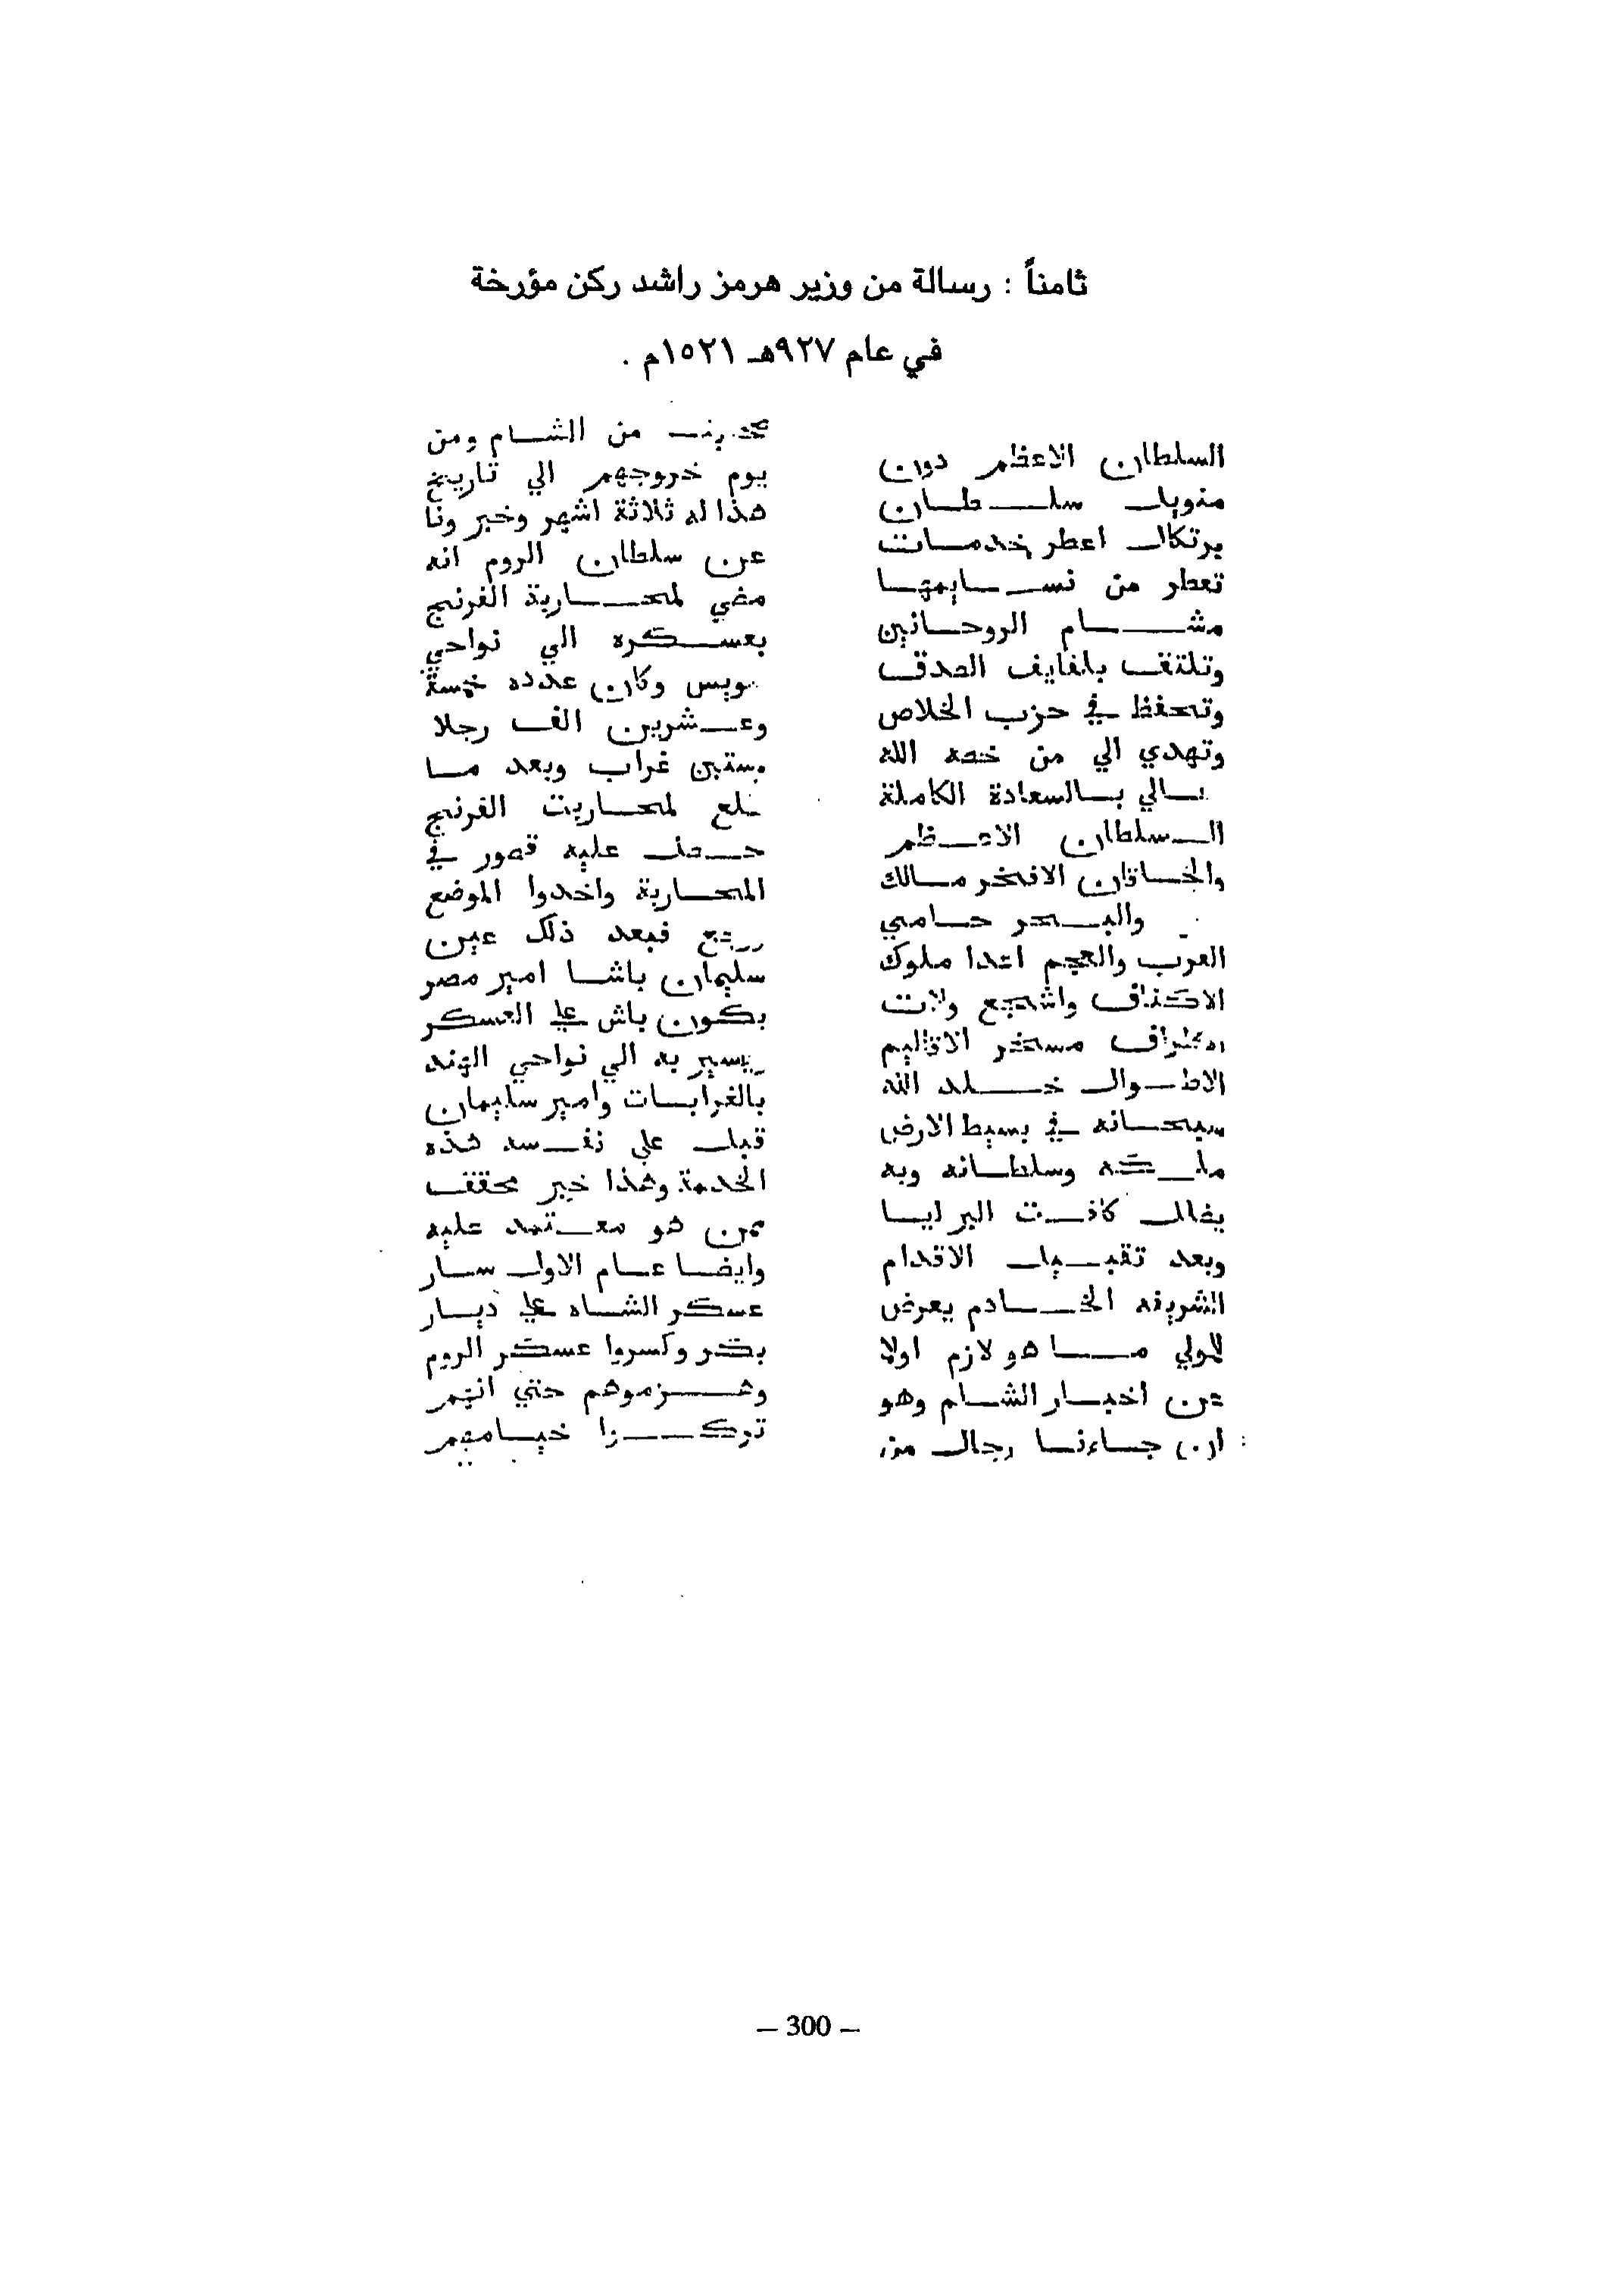 ثامناً : رسالة من وزير هرمز راشد ركن مؤرخة
في عام ٩٢٧هـ ١٥٢١م .
السلطان الاعظم دون
منويل سلطان
برتكال اعطر خدمات
تعطر من نسايمها
مشام الروحانين
وتلتفف بلفايف الصدق
وتحفظ في حزب الخلاص
وتهدي الي من خصه الله
بالسعادة الكاملة
السلطان الاعظم
والخاقان الافخر مالك
والبحر حامي
العرب والعجم اعدا ملوك
الاكناف واشجع ولات
مسخر الاقاليم
الاطوال خلد الله
سبحانه في بسيط الارض
ملكه وسلطانه وبه
كافت البرايا
وبعد تقبيل الاقدام
الشريفه الخادم يعرض
للمولي ما هو لازم اولا
عن اخبار الشام وهو
ان جاءنا رجال من
من الشام ومن
يوم خروجهم الي تاريخ
هذا له ثلاثة اشهر وخبرونا
عن سلطان الروم انه
مضي لمحاربة الفرنج
بعسكره الي نواحي
وكان عدده خمسة
وعشرين الف رجلا
بستين غراب وبعد ما
طلع لمحاربت الفرنج
حصل عليه قصور في
المحاربة واخدوا الموضع
ورجع فبعد ذلك عين
سليمان باشا امير مصر
يكون باش علي العسكر
يسير به الي نواحي الهند
بالغرابات وامير سليمان
قبل علي نفسه هذه
الخدمة وهذا خبر محقق
ممن هو معتمد عليه
وايضا عام الاول سار
عسكر الشاه علي ديار
بكر وكسروا عسكر الروم
وهزموهم حتي انهم
تركوا خيامهم
– 300 –